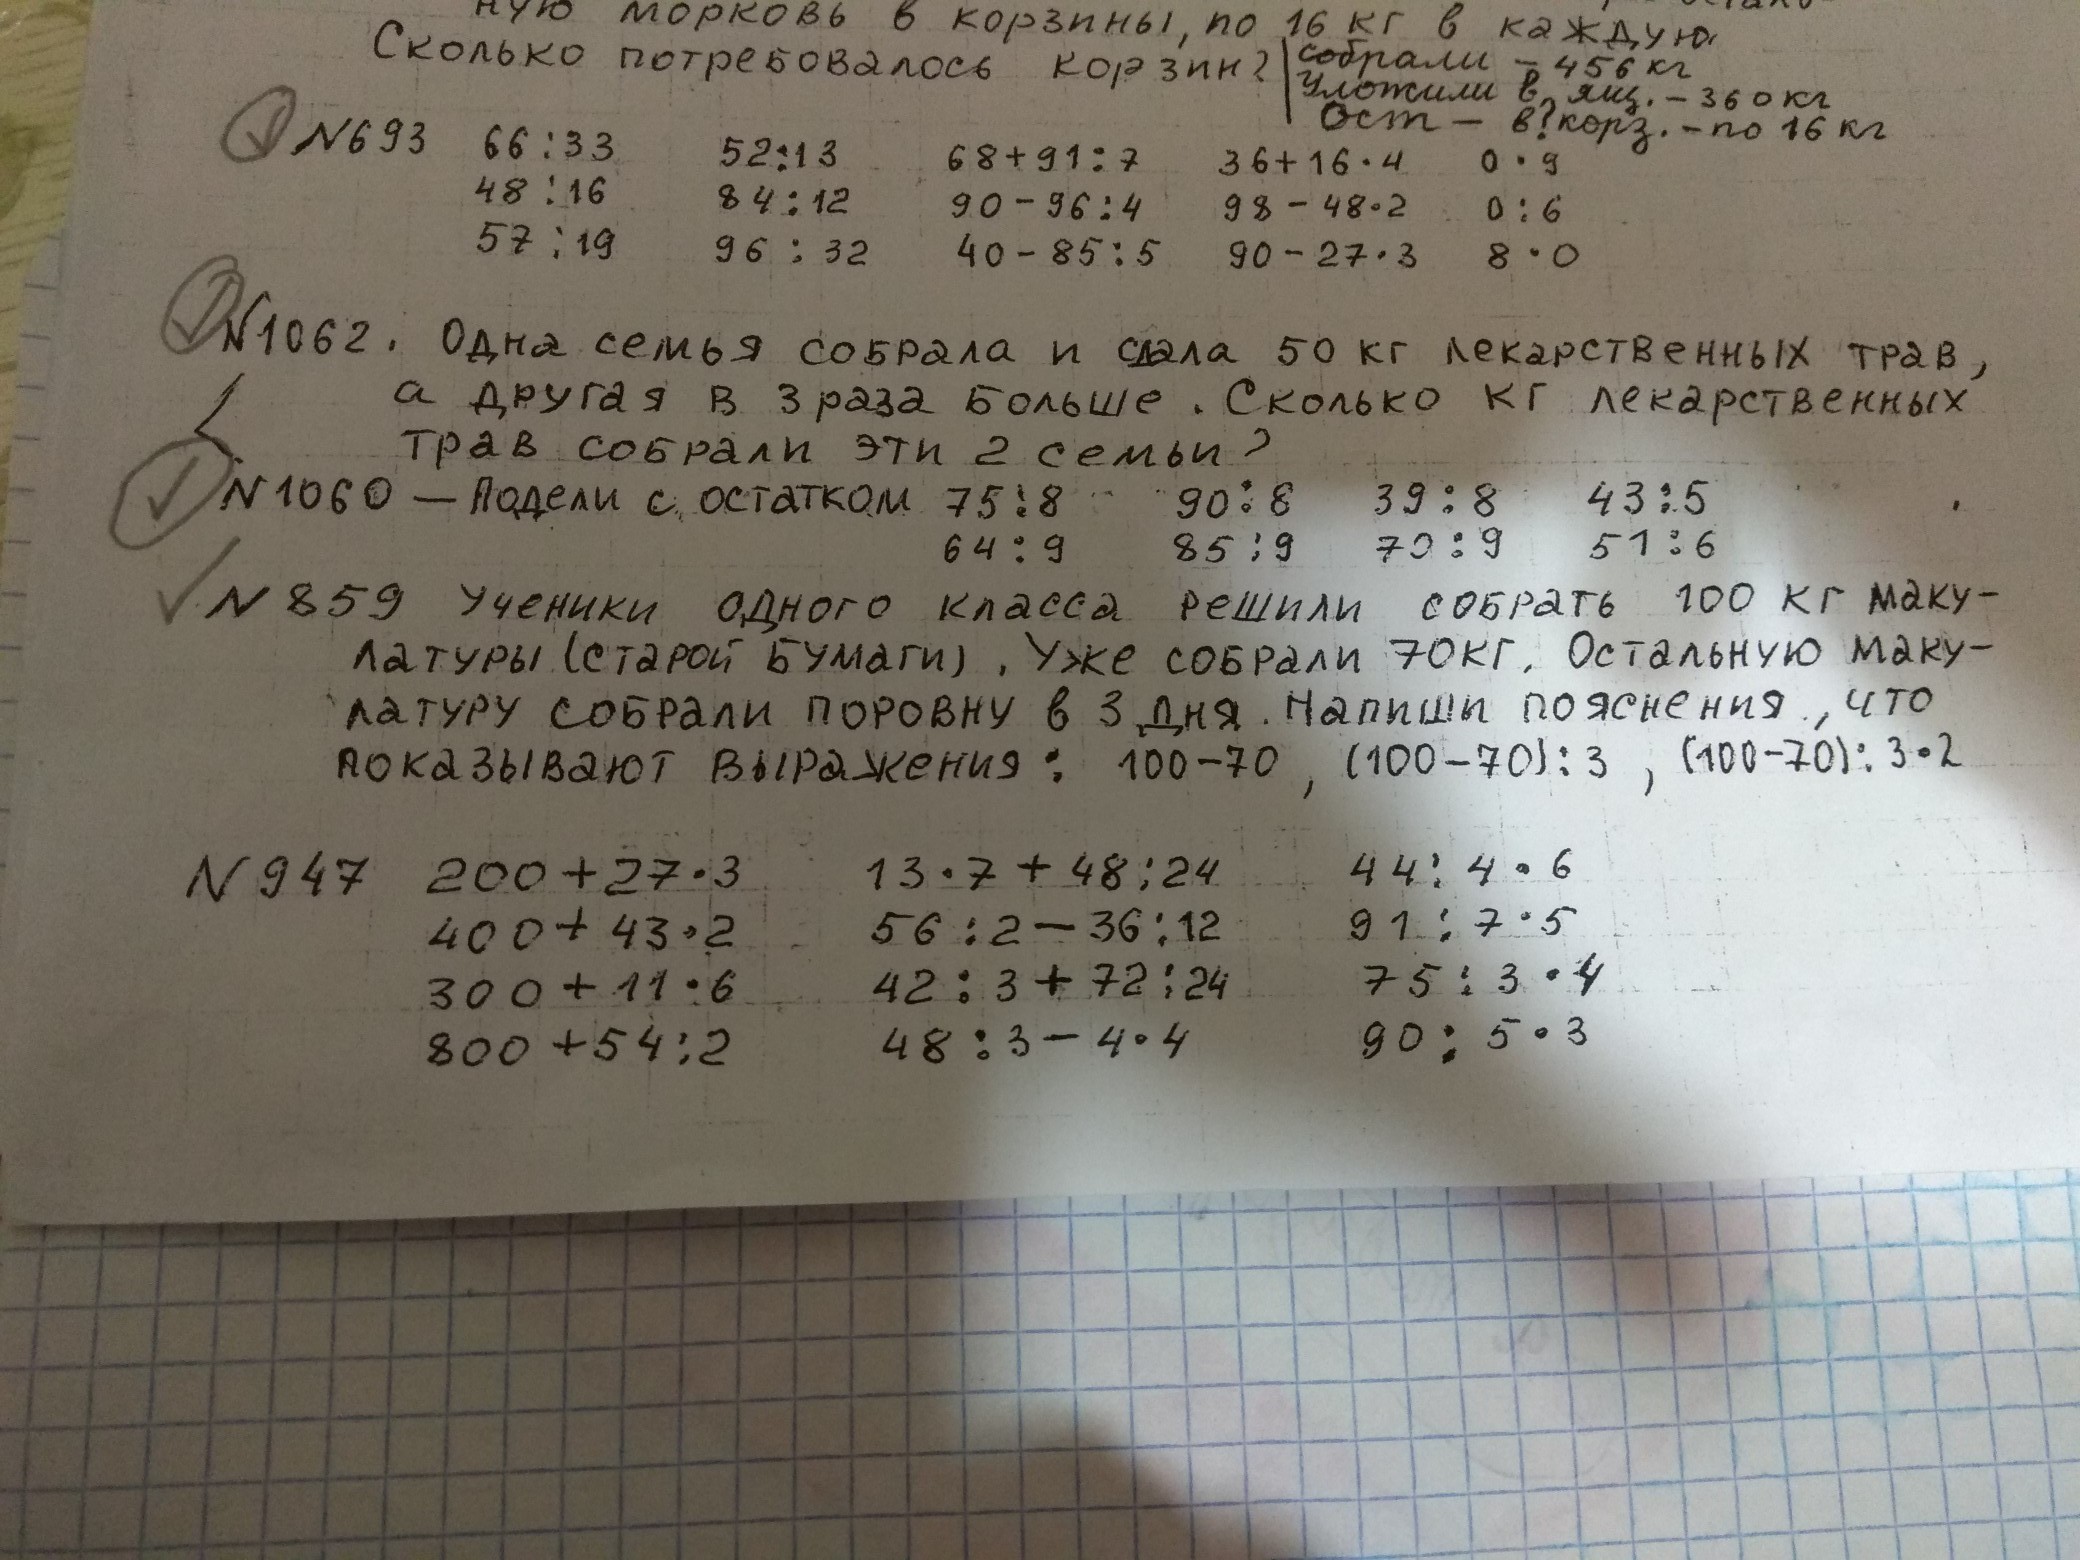 ную морковь в корзины, по 16 кг в каждую.
Сколько потребовалось корзин?
собрали - 456 кг
Уложили в ящ. - 360 кг
Ост - в? корз. - по 16 кг
N693 66:33 52:13 68+91:7 36+16·4 0·9
48:16 84:12 90-96:4 98-48·2 0:6
57:19 96:32 40-85:5 90-27·3 8·0
N1062. Одна семья собрала и сдала 50 кг лекарственных трав,
а другая в 3 раза больше. Сколько кг лекарственных
трав собрали эти 2 семьи?
N1060 — Подели с остатком 75:8 90:8 39:8 43:5
64:9 85:9 70:9 51:6
N859 Ученики одного класса решили собрать 100 кг маку-
латуры (старой бумаги). Уже собрали 70кг. Остальную маку-
латуру собрали поровну в 3 дня. Напиши пояснения, что
показывают выражения: 100-70, (100-70):3, (100-70):3·2
N947 200+27·3 13·7+48:24 44:4·6
400+43·2 56:2-36:12 91:7·5
300+11·6 42:3+72:24 75:3·4
800+54:2 48:3-4·4 90:5·3